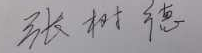 张树德